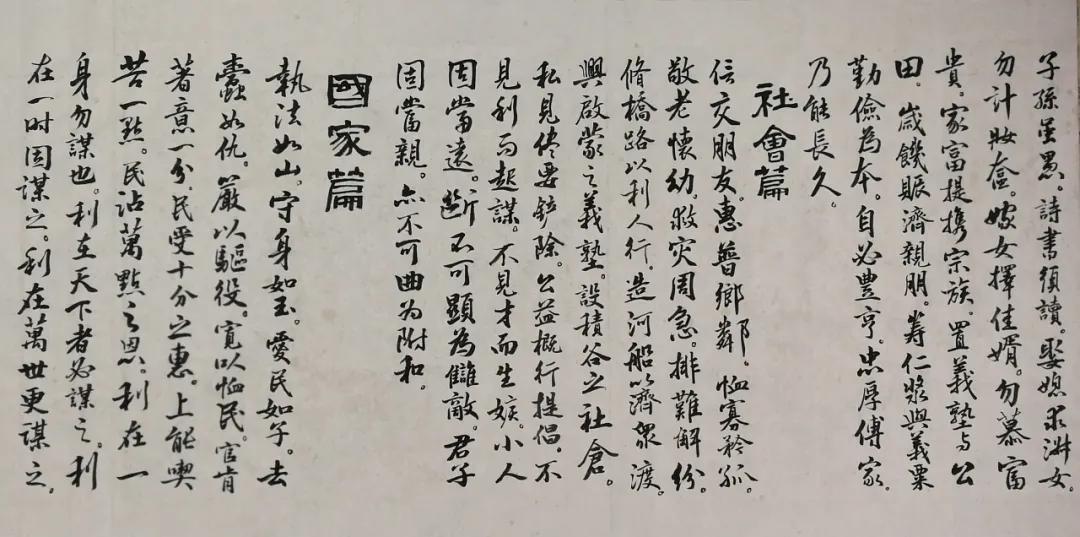 子孫虽愚。詩書須讀。娶媳求淑女。
勿計妝奩。嫁女擇佳婿。勿慕富
貴。家富提携宗族。置義塾与公
田。歲饑賑濟親朋。筹仁漿與義粟。
勤儉為本。自必豊亨。忠厚傳家。
乃能長久。
社會篇
信交朋友。惠普鄉鄰。恤寡矜孤。
敬老懷幼。救灾周急。排難解紛。
脩橋路以利人行。造河船以濟眾渡。
興啟蒙之義塾。設積谷之社倉。
私見侭要鏟除。公益概行提倡。不
見利而起謀。不見才而生嫉。小人
固當遠。断不可顯為讎敵。君子
固當親。亦不可曲为附和。
國家篇
執法如山。守身如玉。愛民如子。去
蠹如仇。嚴以驅役。寬以恤民。官肯
著意一分。民受十分之惠。上能喫
苦一點。民沾萬點之恩。利在一
身勿謀也。利在天下者必謀之。利
在一时固謀之。利在萬世更謀之。